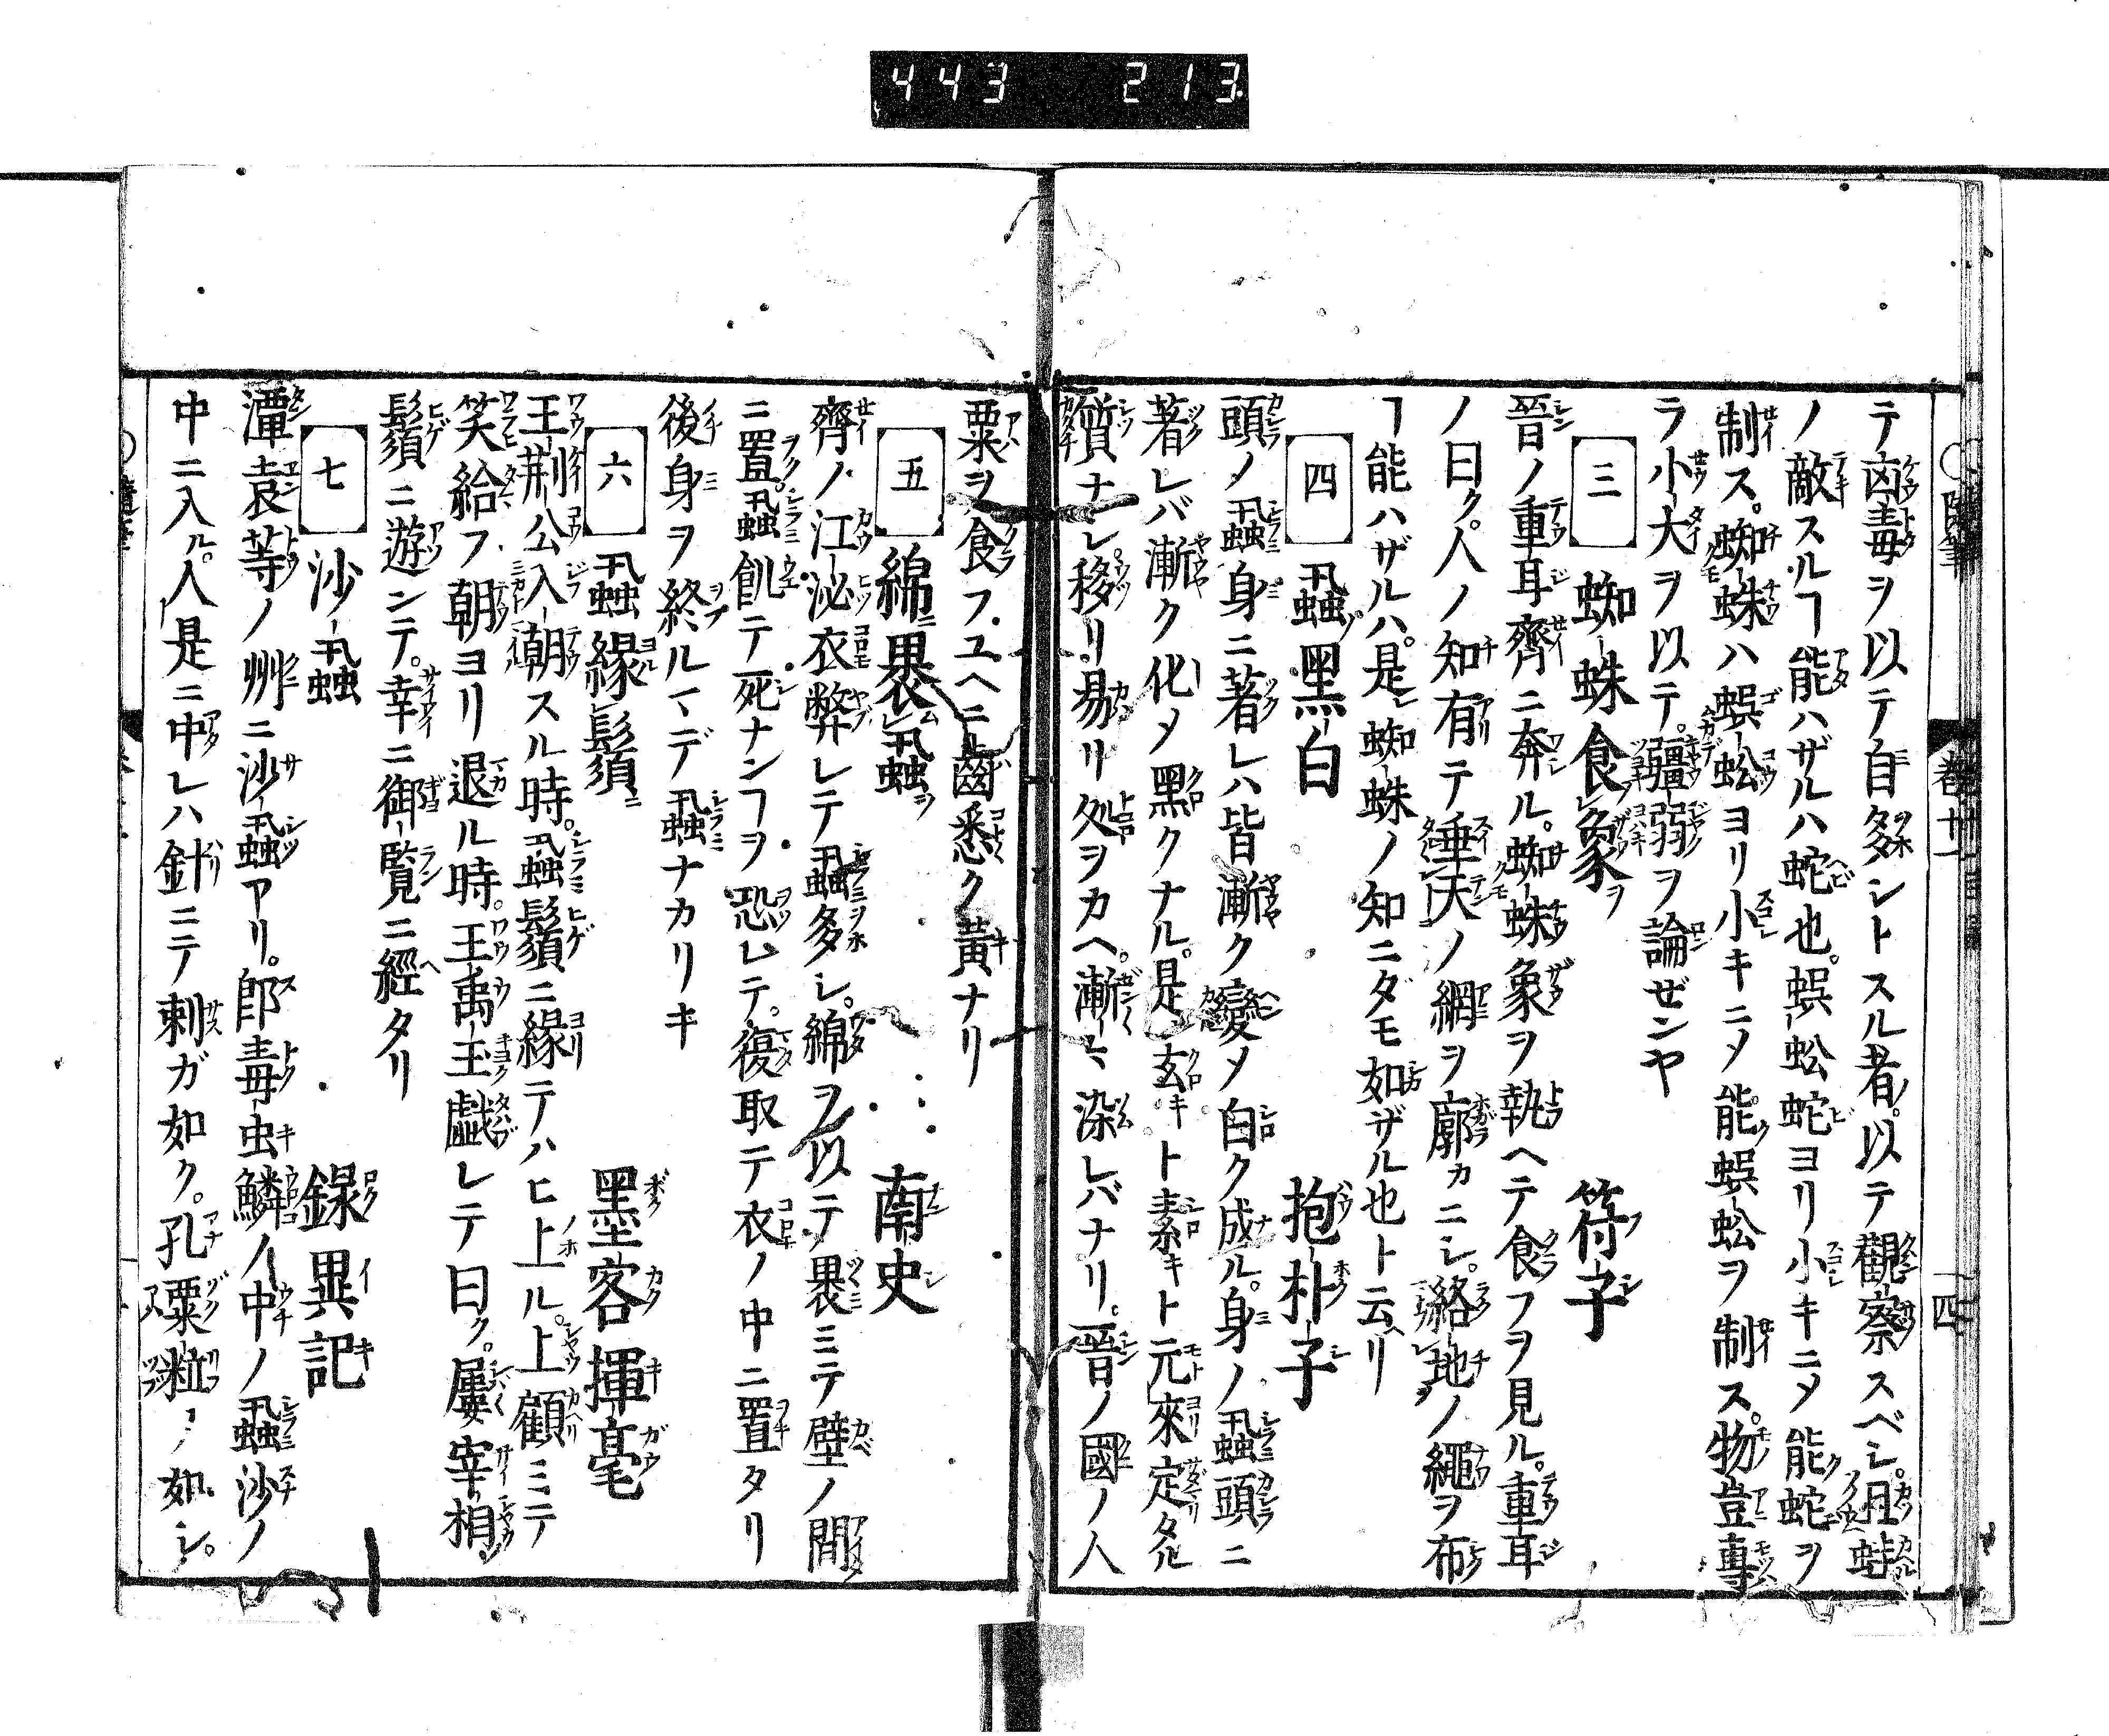 443 213
テ凶毒ヲ以テ自多シトスル者。以テ觀察スベシ。且蛙
ノ敵スルヿ能ハザルハ蛇也。蜈蚣蛇ヨリ小キニメ能蛇ヲ
制ス。蜘蛛ハ蜈蚣ヨリ小キニメ能蜈蚣ヲ制ス。物豈專
ラ小大ヲ以テ。彊弱ヲ論ゼンヤ
三 蜘蛛食象ヲ 符子
晉ノ重耳齊ニ奔ル。蜘蛛象ヲ執ヘテ食フヲ見ル。重耳
ノ曰ク。人ノ知有テ埀天ノ網ヲ廓カニシ。絡地ノ繩ヲ布
ヿ能ハザルハ。是蜘蛛ノ知ニダモ如ザル也ト云リ
四 虱黑白 抱朴子
頭ノ虱身ニ著レハ皆漸ク變メ白ク成ル。身ノ虱頭ニ
著レバ漸ク化メ黑クナル。是玄キト素キト元來定タル
質ナレ移リ易リ処ヲカヘ。漸々染レバナリ。晉ノ國ノ人
粟ヲ食フ。ユヘニ齒悉ク黃ナリ
五 綿ニ裹虱ヲ 南史
齊ノ江泌衣弊レテ虱多シ。綿ヲ以テ裹ミテ壁ノ間
ニ置。虱飢テ死ナンヿヲ恐レテ。復取テ衣ノ中ニ置タリ
後身ヲ終ルマデ虱ナカリキ
六 虱緣鬚ニ 墨客揮毫
王荆公入朝スル時。虱鬚ニ緣テハヒ上ル。上顧ミテ
笑給フ朝ヨリ退ル時。王禹玉戯レテ曰ク。屢宰相ノ
鬚ニ遊ンテ。幸ニ御覽ニ經タリ
七 沙虱 錄異記
潭袁等ノ州ニ沙虱アリ。即毒虫鱗ノ中ノ虱沙ノ
中ニ入ル。人是ニ中レハ針ニテ刺ガ如ク。孔粟粒ノ如シ。
卷廿一
四